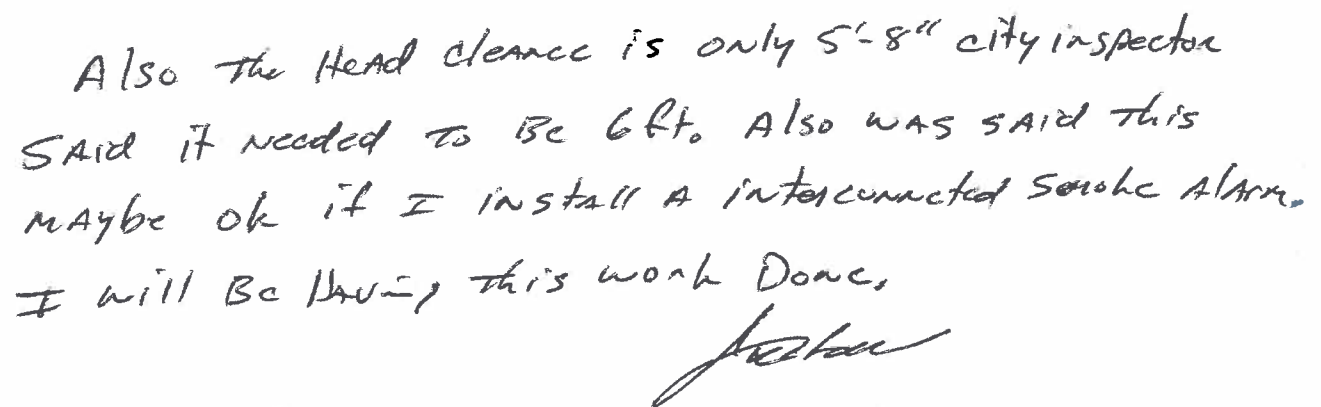 Also The Head cleance is only 5'-8" city inspector
SAid it Needed To Be 6 ft. Also was SAid This
mAybe ok if I install A interconnected Smoke AlArm.
I will Be Having This work Done.